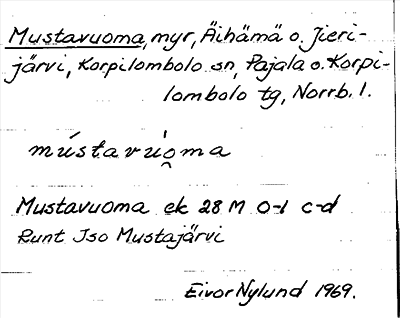 Mustavuoma, myr, Äihämä o. Jieri-
järvi, Korpilombolo sn, Pajala o. Korpi-
lombolo tg, Norrb. l.
mústavùo̯ma
Mustavuoma ek 28 M 0-1 c-d
Runt Iso Mustajärvi
Eivor Nylund 1969.